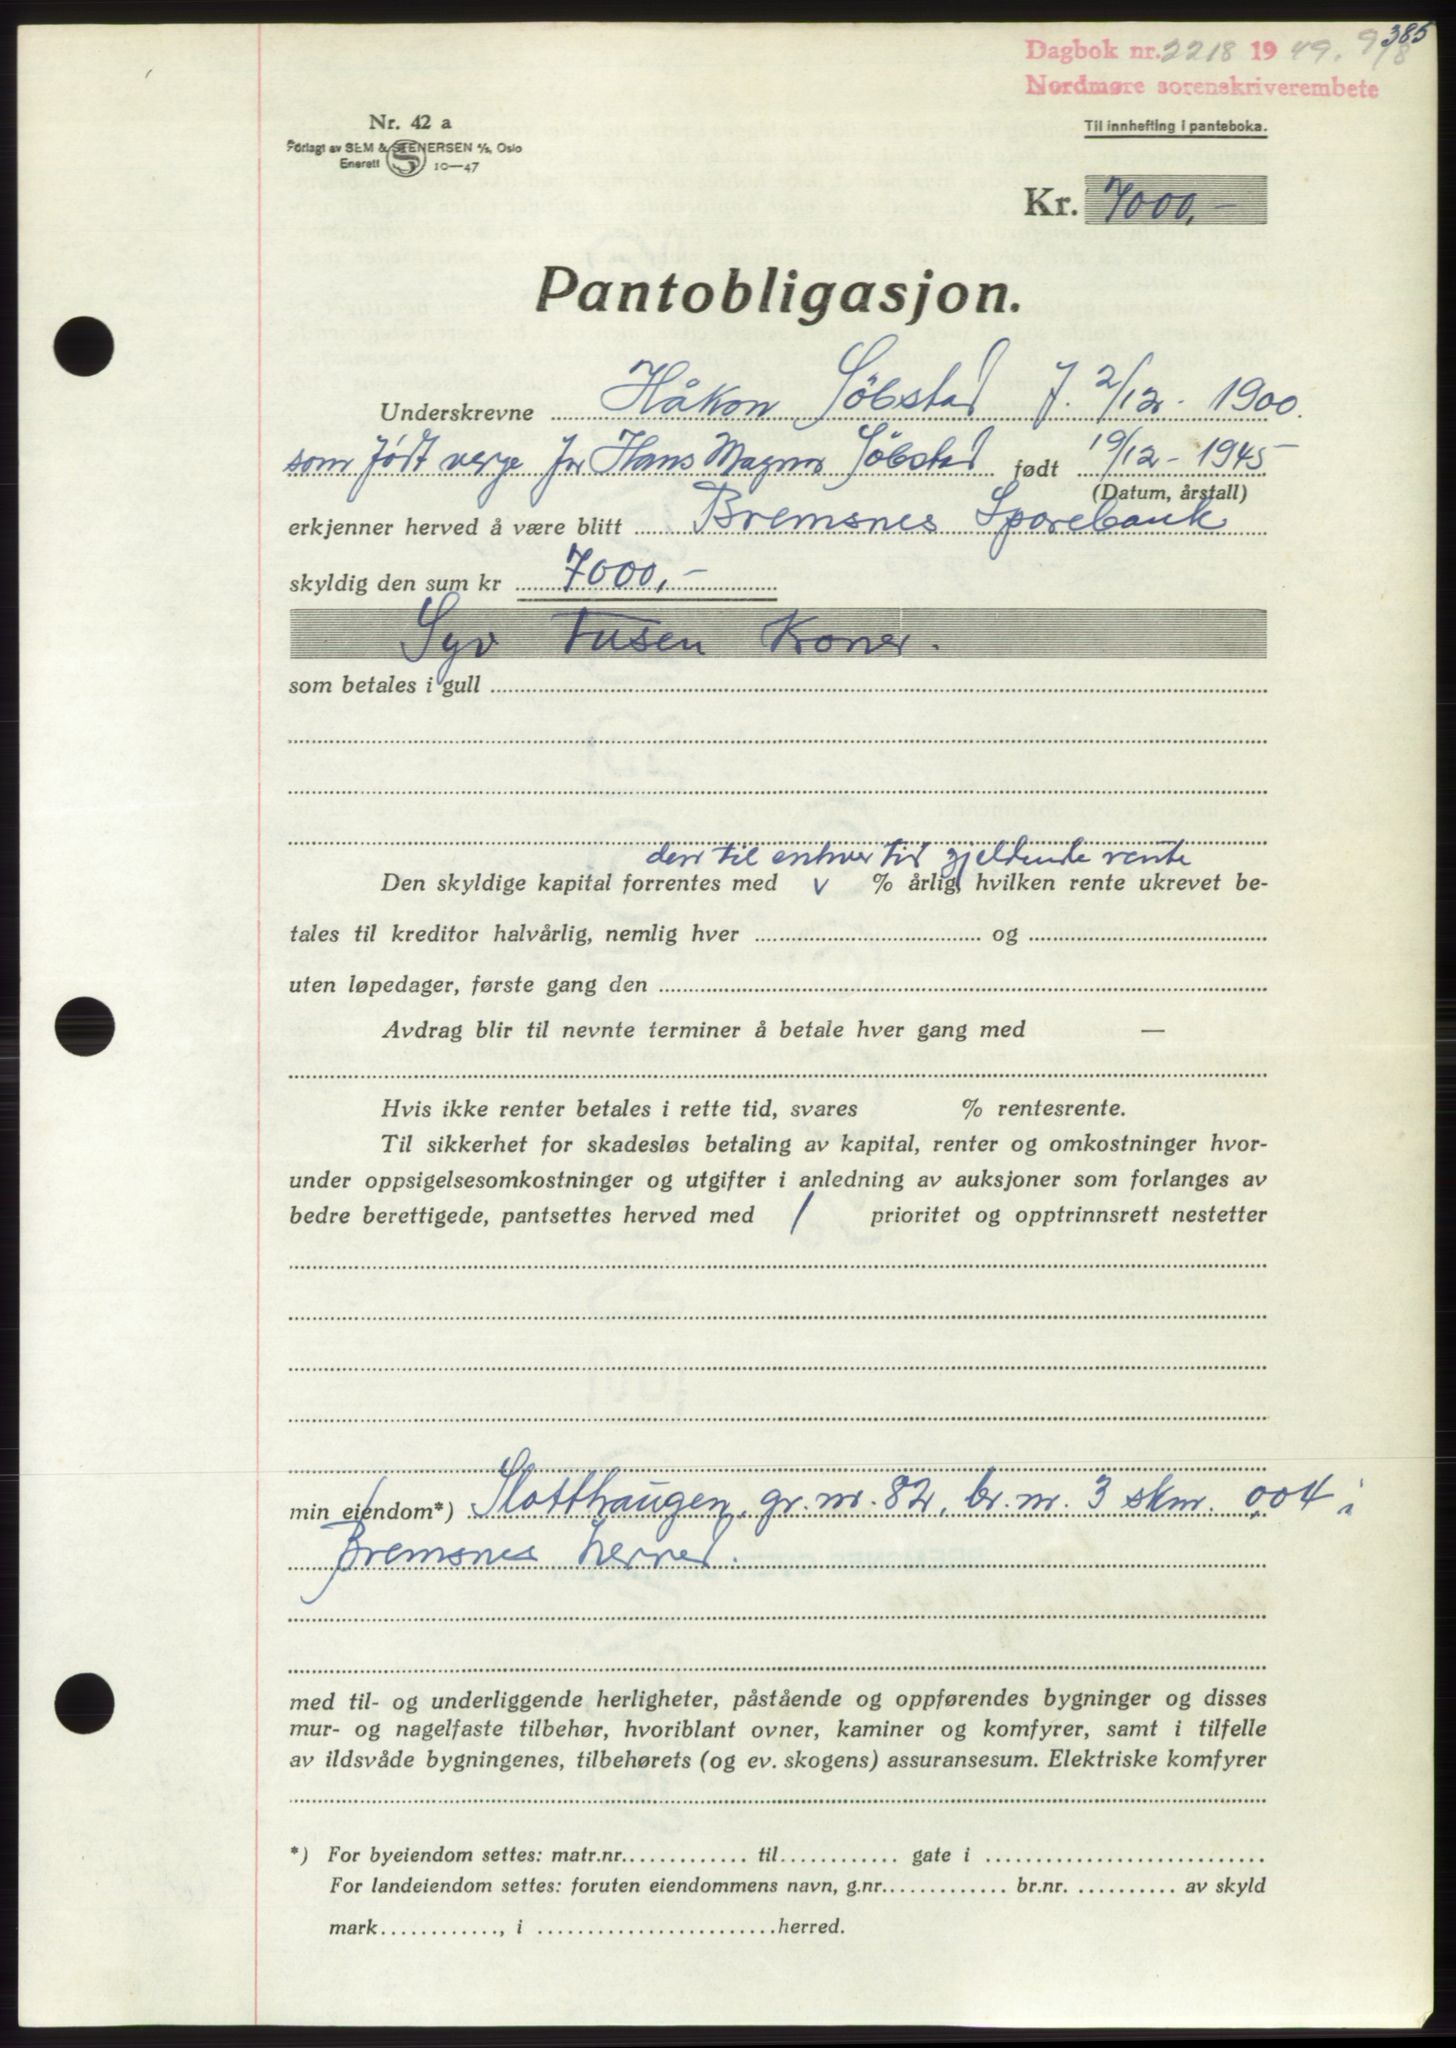 385
Dagbok nr. 2218 1949. 9/8
Nordmøre sorenskriverembete
Nr. 42 a
Forlagt av SEM & STENERSEN A/S, Oslo
Enerett S 10—47
Til innhefting i panteboka.
Kr. 7000,-
Pantobligasjon.
Underskrevne Håkon Söbstad f. 2/12 - 1900.
som født verge for Hans Magnor Söbstad født 19/12 - 1945
(Datum, årstall)
erkjenner herved å være blitt Bremsnes Sparebank
skyldig den sum kr 7000,-
Syv tusen Kroner.
som betales i gull
den til enhver tid gjeldende rente
Den skyldige kapital forrentes med v % årlig, hvilken rente ukrevet be-
tales til kreditor halvårlig, nemlig hver og
uten løpedager, første gang den
Avdrag blir til nevnte terminer å betale hver gang med —
Hvis ikke renter betales i rette tid, svares % rentesrente.
Til sikkerhet for skadesløs betaling av kapital, renter og omkostninger hvor-
under oppsigelsesomkostninger og utgifter i anledning av auksjoner som forlanges av
bedre berettigede, pantsettes herved med 1 prioritet og opptrinnsrett nestetter
min eiendom*) Slotthaugen, gr. nr. 82, br. nr. 3 skm. 0,04 i
Bremsnes herred.
med til- og underliggende herligheter, påstående og oppførendes bygninger og disses
mur- og nagelfaste tilbehør, hvoriblant ovner, kaminer og komfyrer, samt i tilfelle
av ildsvåde bygningenes, tilbehørets (og ev. skogens) assuransesum. Elektriske komfyrer
*) For byeiendom settes: matr.nr. til gate i
For landeiendom settes: foruten eiendommens navn, g.nr. br.nr. av skyld
mark , i herred.